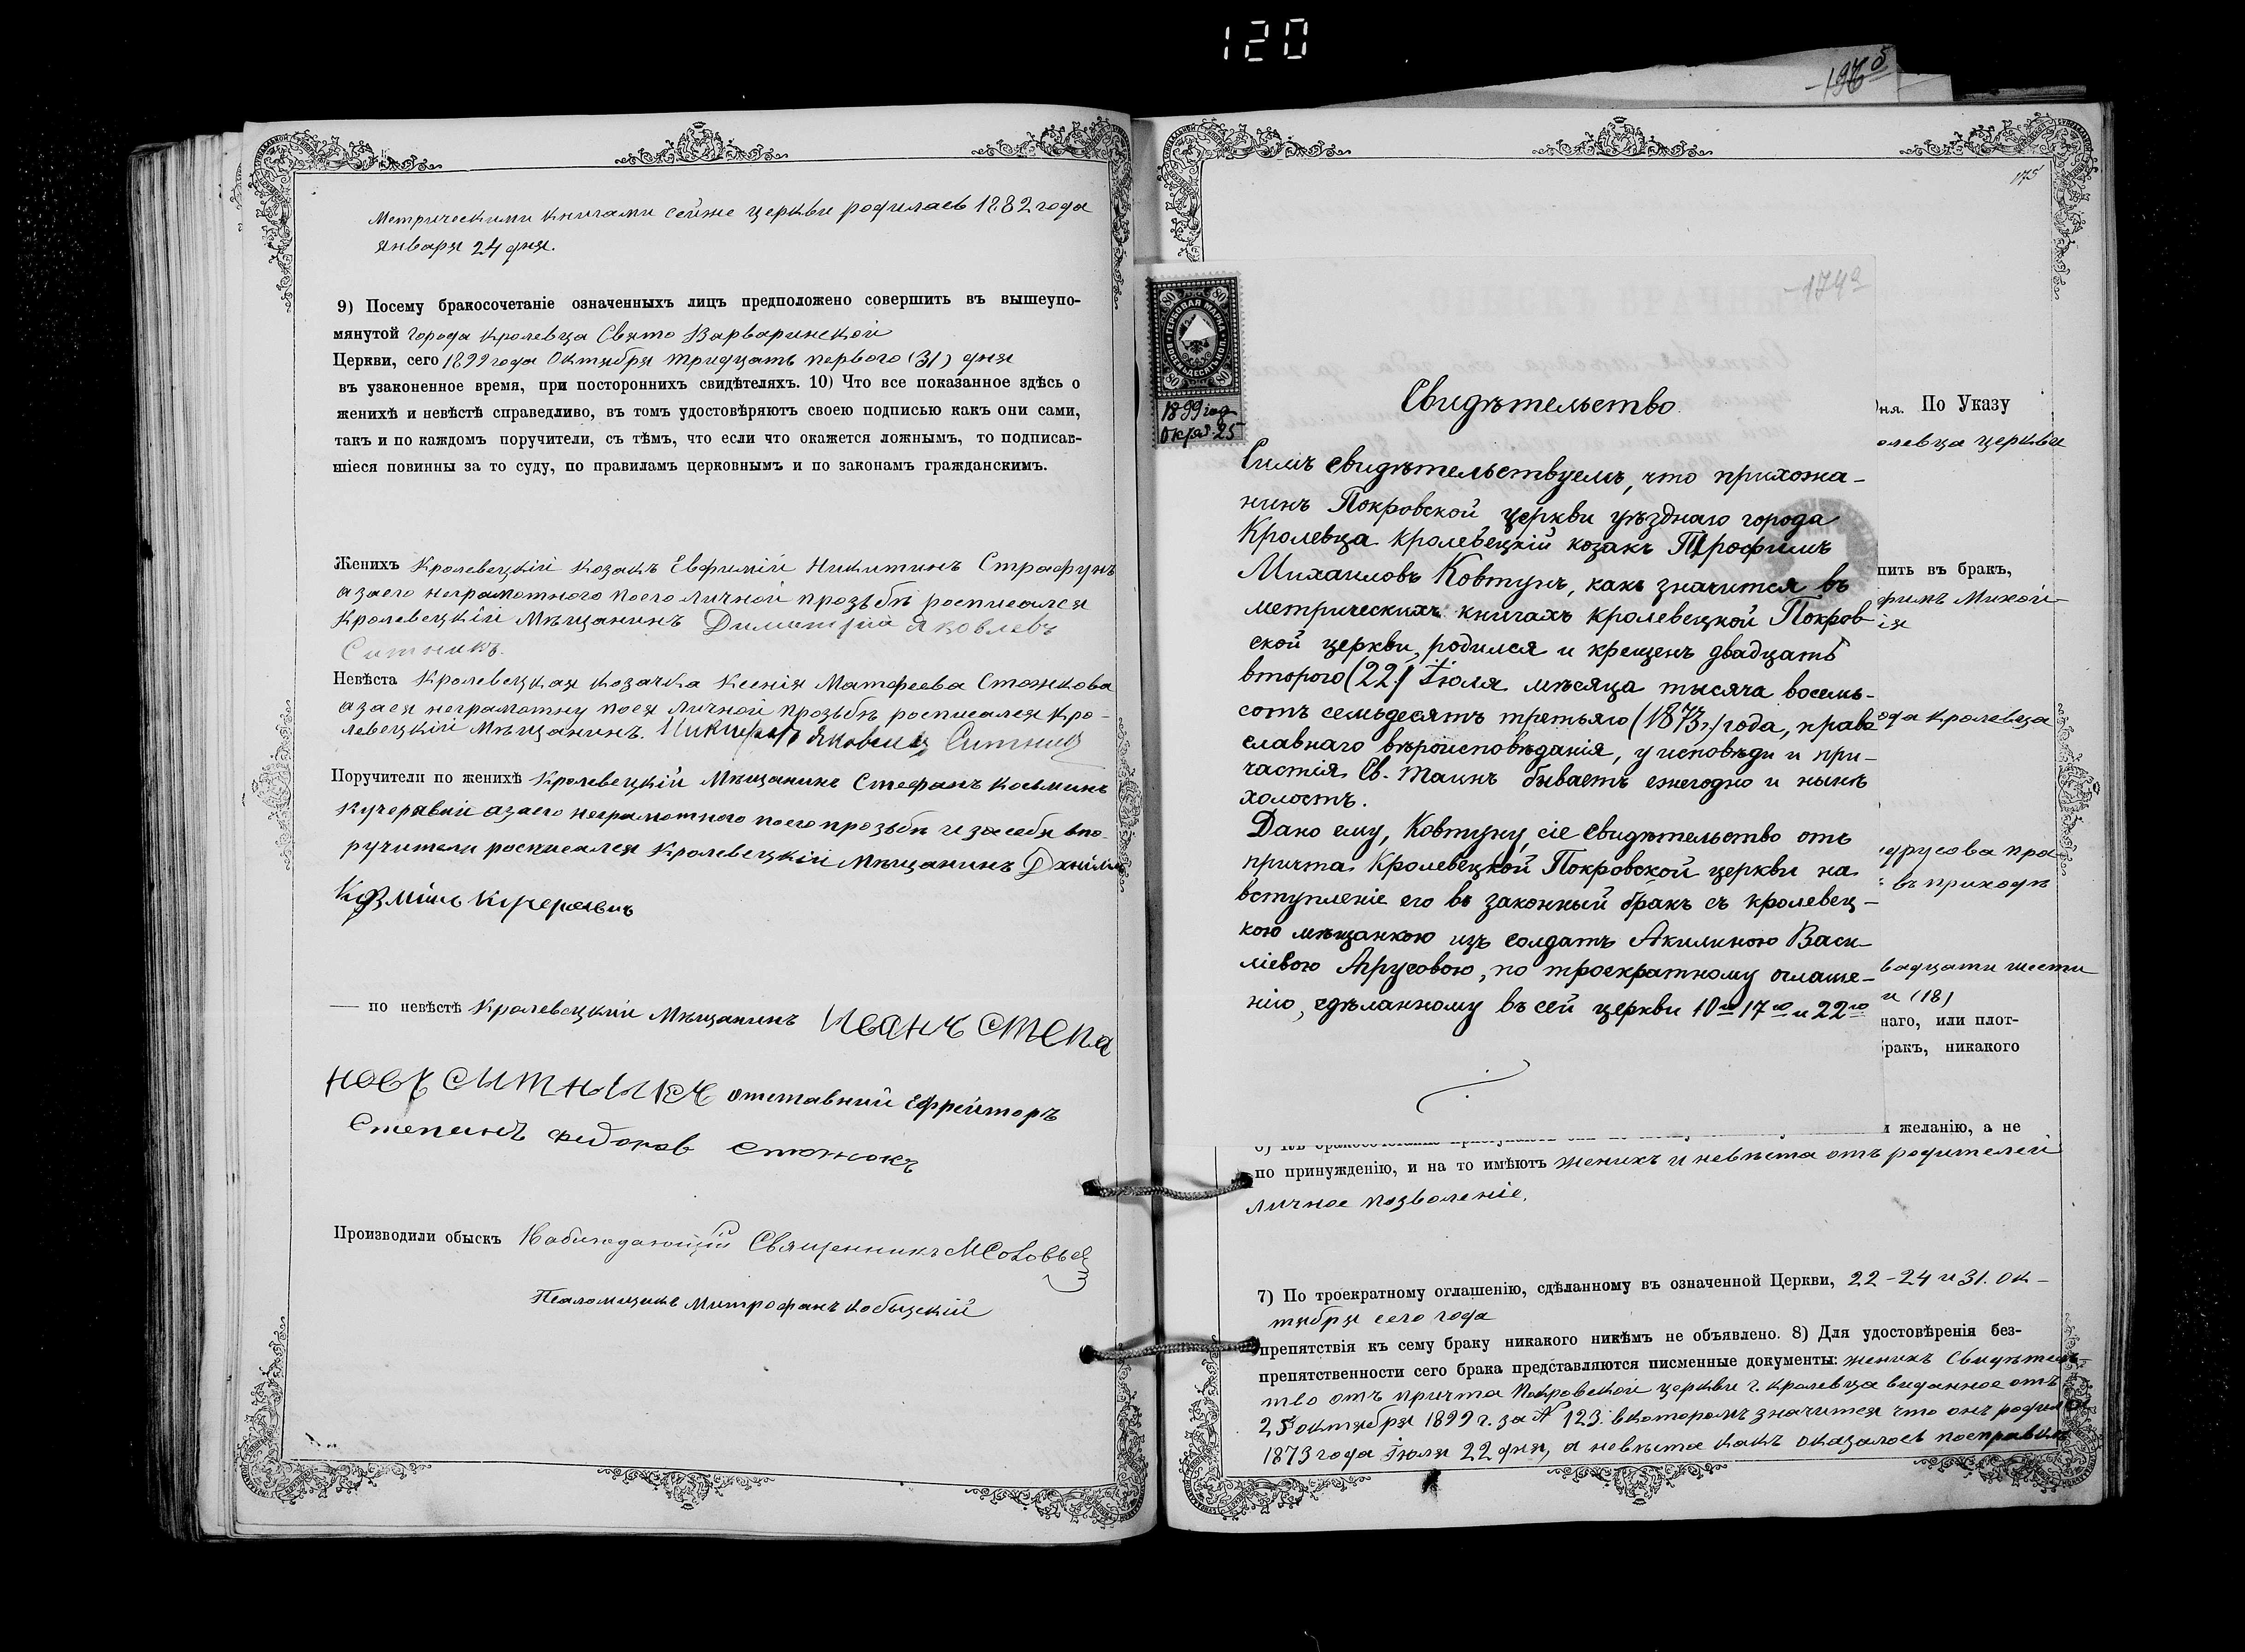 120
196
метрическими книгами сейже церкви родилась 1882 года
января 24 дня.
9) Посему бракосочетаніе означенныхъ лицъ предположено совершить въ вышеупо-
мянутой города Кролевца Свято Варваринской
Церкви, сего 1899 года Октября тридцать перваго (31) дня
въ узаконенное время, при постороннихъ свидѣтеляхъ. 10) Что все показанное здѣсь о
женихѣ и невѣстѣ справедливо, въ томъ удостовѣряютъ своею подписью какъ они сами,
такъ и по каждомъ поручители, съ тѣмъ, что если что окажется ложнымъ, то подписав-
шіеся повинны за то суду, по правиламъ церковнымъ и по законамъ гражданскимъ.
Женихъ Кролевецкій козакъ Евфимій Никитинъ Страфунъ
азаего неграмотного поего личной прозьбѣ росписался
Кролевецкій Мѣщанинъ Димитрій Яковлевъ
Ситникъ.
Невѣста Кролевецкая козачка Ксенія Матфеева Стожкова
азаея неграмотну поея личной прозьбѣ росписался Кро-
левецкій Мѣщанинъ Никифоръ Яковлевъ Ситникъ
Поручители по женихѣ Кролевецкій Мѣщанинъ Стефанъ Косьминъ
Кучерявий азаего неграмотного поего прозьбѣ изасебя впо-
ручители росписался Кролевецкій Мѣщанинъ
Козминъ Кучерявий
— по невѣстѣ Кролевецкій Мѣщанинъ Иванъ Степа
новъ Ситникъ отставний Ефрейторъ
Степанъ Федоров Стожокъ
Производили обыскъ Наблюдающій Священникъ М Соловьев
Псаломщикъ Митрофанъ Кобыцкій
175
174а
80 80
ГЕРБОВАЯ МАРКА
ВОСЕМЬДЕСЯТЬ КОП.
80 80
1899 год
Октяб. 25
Свидѣтельство.
Симъ свидѣтельствуемъ, что прихожа-
нинъ Покровской церкви уѣзднаго города
Кролевца кролевецкій козакъ Трофимъ
Михаиловъ Ковтунъ, какъ значится въ
метрическихъ книгахъ кролевецкой Покров
ской церкви, родился и крещенъ двадцать
второго (22.) Іюля мѣсяца тысяча восемь-
сотъ семьдесятъ третьяго (1873г.) года, право
славнаго вѣроисповѣданія, у исповѣди и при-
частія Св. Таинъ бываетъ ежегодно и нынѣ
холостъ.
Дано ему, Ковтуну, сіе свидѣтельство отъ
причта Кролевецкой Покровской церкви на
вступленіе его въ законный бракъ съ кролевец-
кою мѣщанкою изъ солдатъ Акилиною Васи-
ліевою Апрусовою, по троекратному оглаше-
нію, сдѣланному въ сей церкви 10го 17го и 22го
дня. По Указу
олевца церкви
пить въ бракъ,
фимъ Михай-
ія
ода Кролевца
друсова пра
въ приходѣ
вадцати шести
и (18)
наго, или плот-
бракъ, никакого
и желанію, а не
по принужденію, и на то имѣютъ женихъ и невѣста отъ родителей
личное позволеніе.
7) По троекратному оглашенію, сдѣланному въ означенной Церкви, 22-24 и 31. Ок-
тября сего года
препятствія къ сему браку никакого никѣмъ не объявлено. 8) Для удостовѣренія без-
препятственности сего брака представляются писменные документы: женихъ Свидѣтель
тво отъ причта Покровской церкви г. Кролевца виданное отъ
25 октября 1899 г. за № 123. вкоторомъ значится что онъ родился
1873 года Іюля 22 дня, а невѣста какъ оказалось посправкѣ